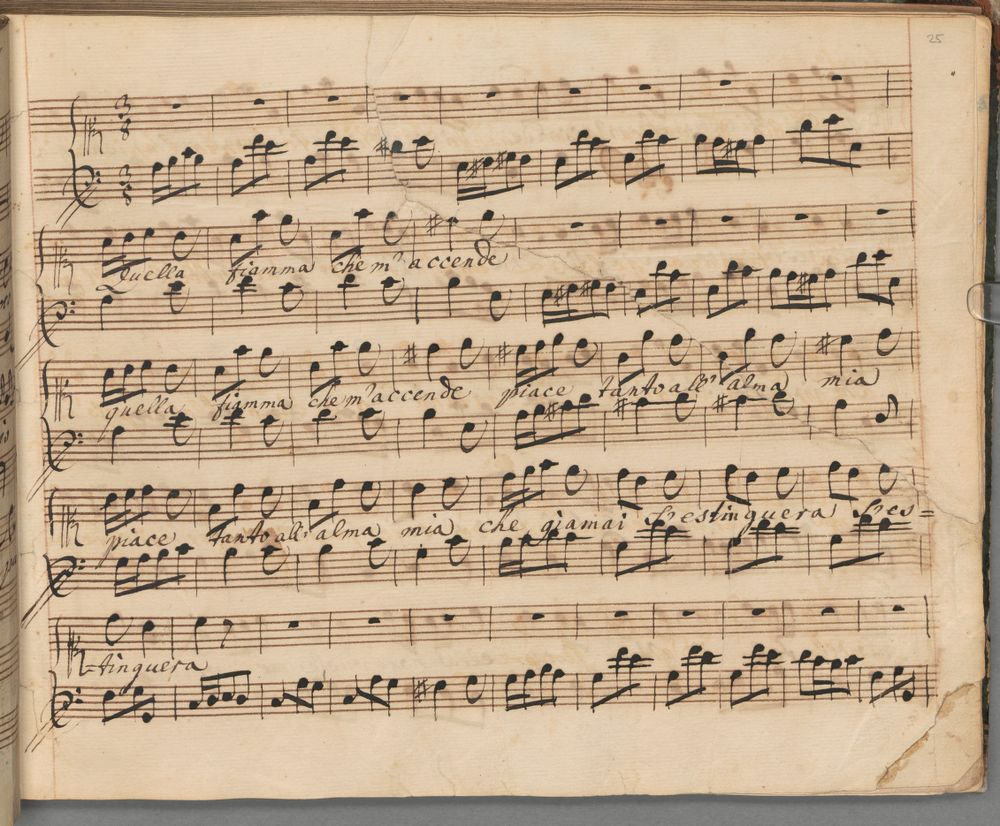 25
3
8
3
8
Quella fiamma che m' accende
quella fiamma che m' accende piace tanto all' alma mia
piace tanto all' alma mia che giamai s'estinguera s'es=
=tinguera